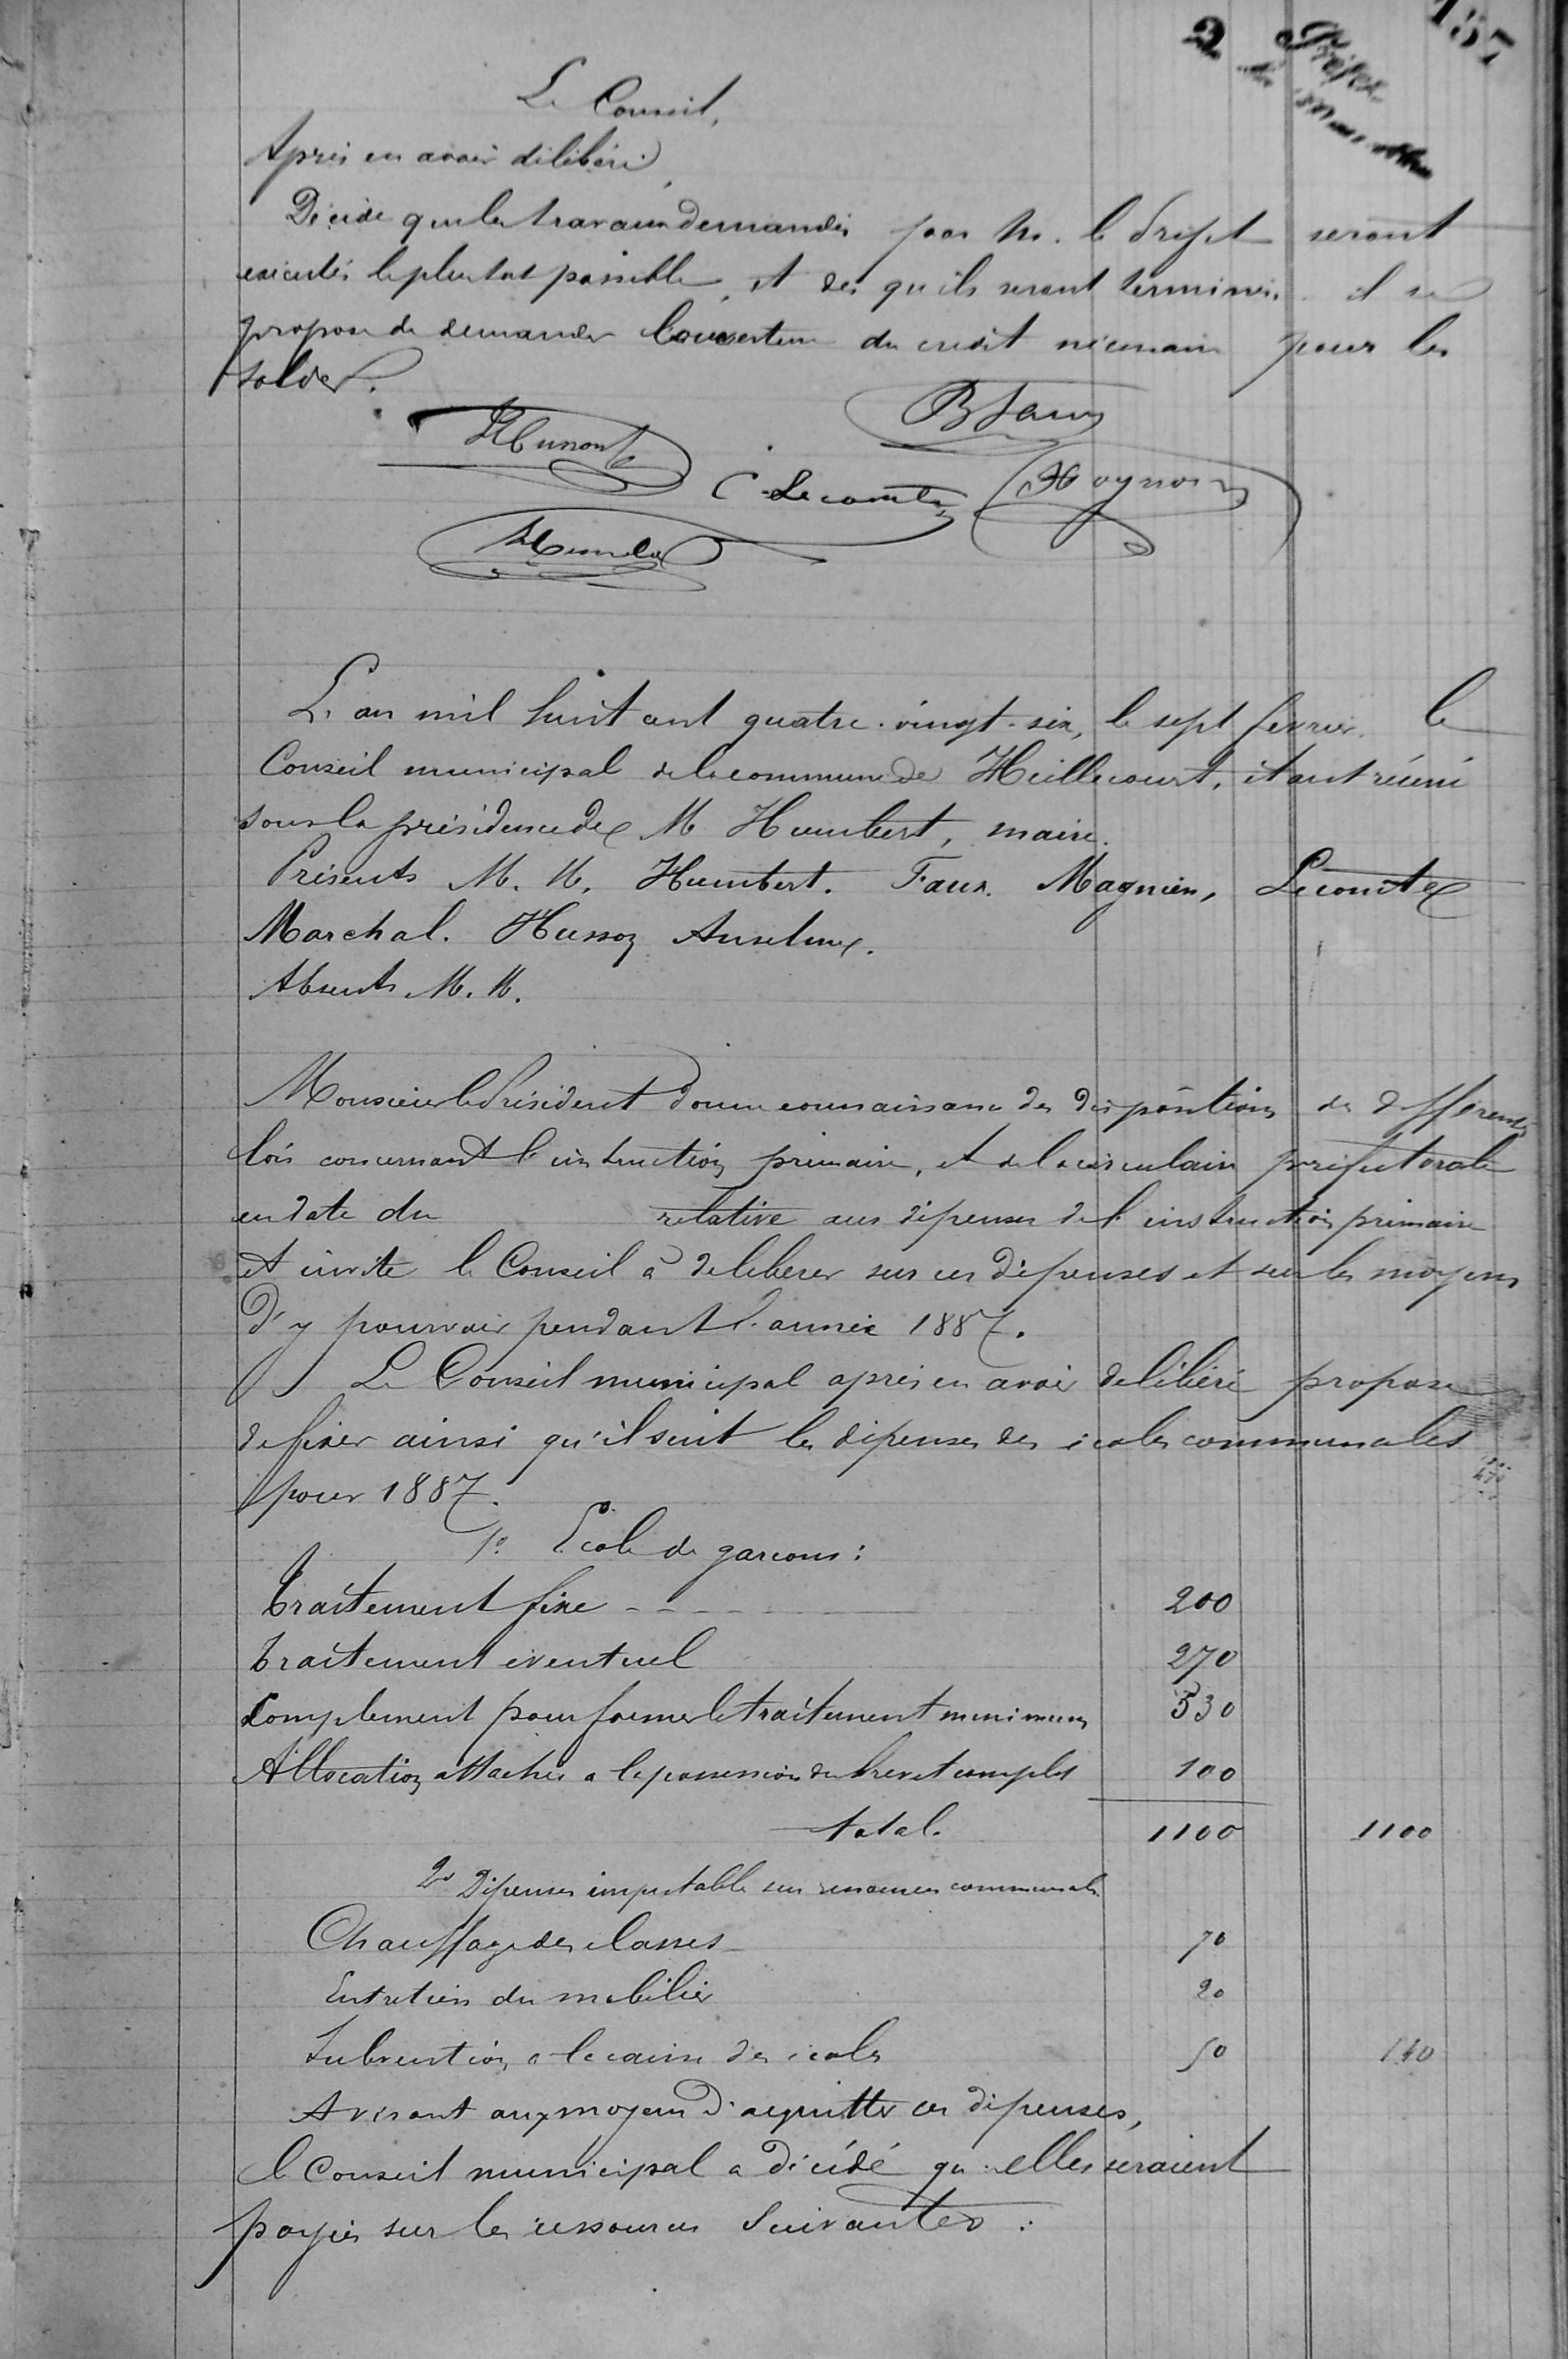 157
2
Le Conseil,
Après en avoir délibéré,
Décide que les travaux demandés par M. le Préfet seront
exécutés le plus tot possible, et dès qu'ils seront terminés il se
propose de demander l'ouverture du crédit nécessaire pour les
solder.
B Faux
C. Lecomte
L'an mil huit cent quatre-vingt-six, le sept février. le
Conseil municipal de la commune de Heillecourt, étant réuni
sous la présidence de M Humbert, maire.
Présents M. M. Humbert. Faux. Magnien, Lecomte
Marchal. Husson Anselme.
Absents M. M.
Monsieur le Président donne connaissance des dispositions des différentes
lois concernant l'instruction primaire, et de la circulaire préfectorale
en date du relative aux dépenses de l'instruction primaire
et invite le Conseil à délibérer sur ces dépenses et sur les moyens
d'y pourvoir pendant l'année 1887.
Le Conseil municipal après en avoir délibéré propose
de fixer ainsi qu'il suit les dépenses des écoles communales
pour 1887.
1o École de garçons:
Traitement fixe 200
Traitement éventuel 270
Complément pour former le traitement minimum 530
Allocation attachée a la possession du brevet complet 100
total. 1100 1100
2o Dépenses imputables sur ressources communales
Chauffage des classes 70
Entretien du mobilier 20
Subvention a la caisse des écoles 50 140
Avisant aux moyens d'acquitter ces dépenses,
le Conseil municipal a décidé qu'elles seraient
payées sur les ressources suivantes :